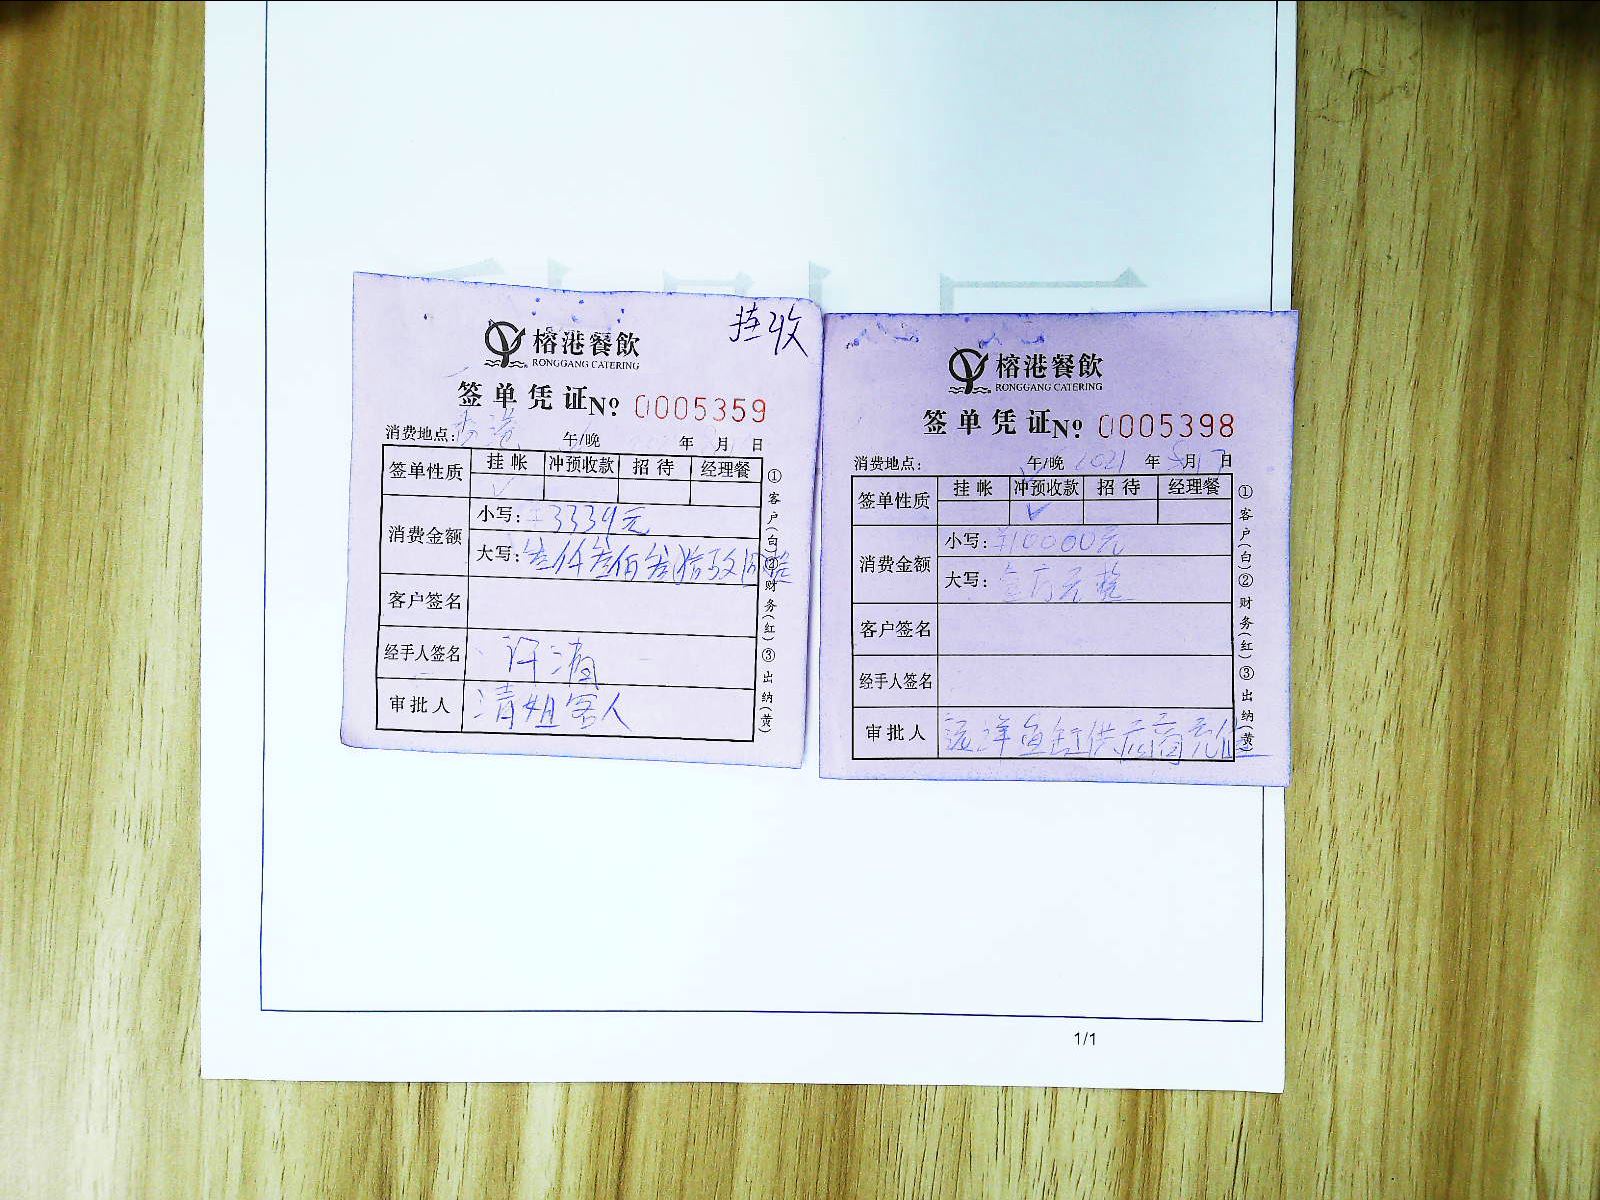 挂收
榕港餐飲
RONGGANG CATERING
签单凭证No 0005359
消费地点: 午/晚 年 月 日
签单性质 挂帐 冲预收款 招待 经理餐
✓
消费金额 小写: 3339元
大写: 叁仟叁佰叁拾玖
客户签名
经手人签名 许
审批人 清姐客人
①客户(白)②财务(红)③出纳(黄)
榕港餐飲
RONGGANG CATERING
签单凭证No 0005398
消费地点: 午/晚 2021年 月 日
签单性质 挂帐 冲预收款 招待 经理餐
✓
消费金额 小写: ¥10000元
大写: 壹万元整
客户签名
经手人签名
审批人 远洋鱼缸供应商充值
①客户(白)②财务(红)③出纳(黄)
1/1